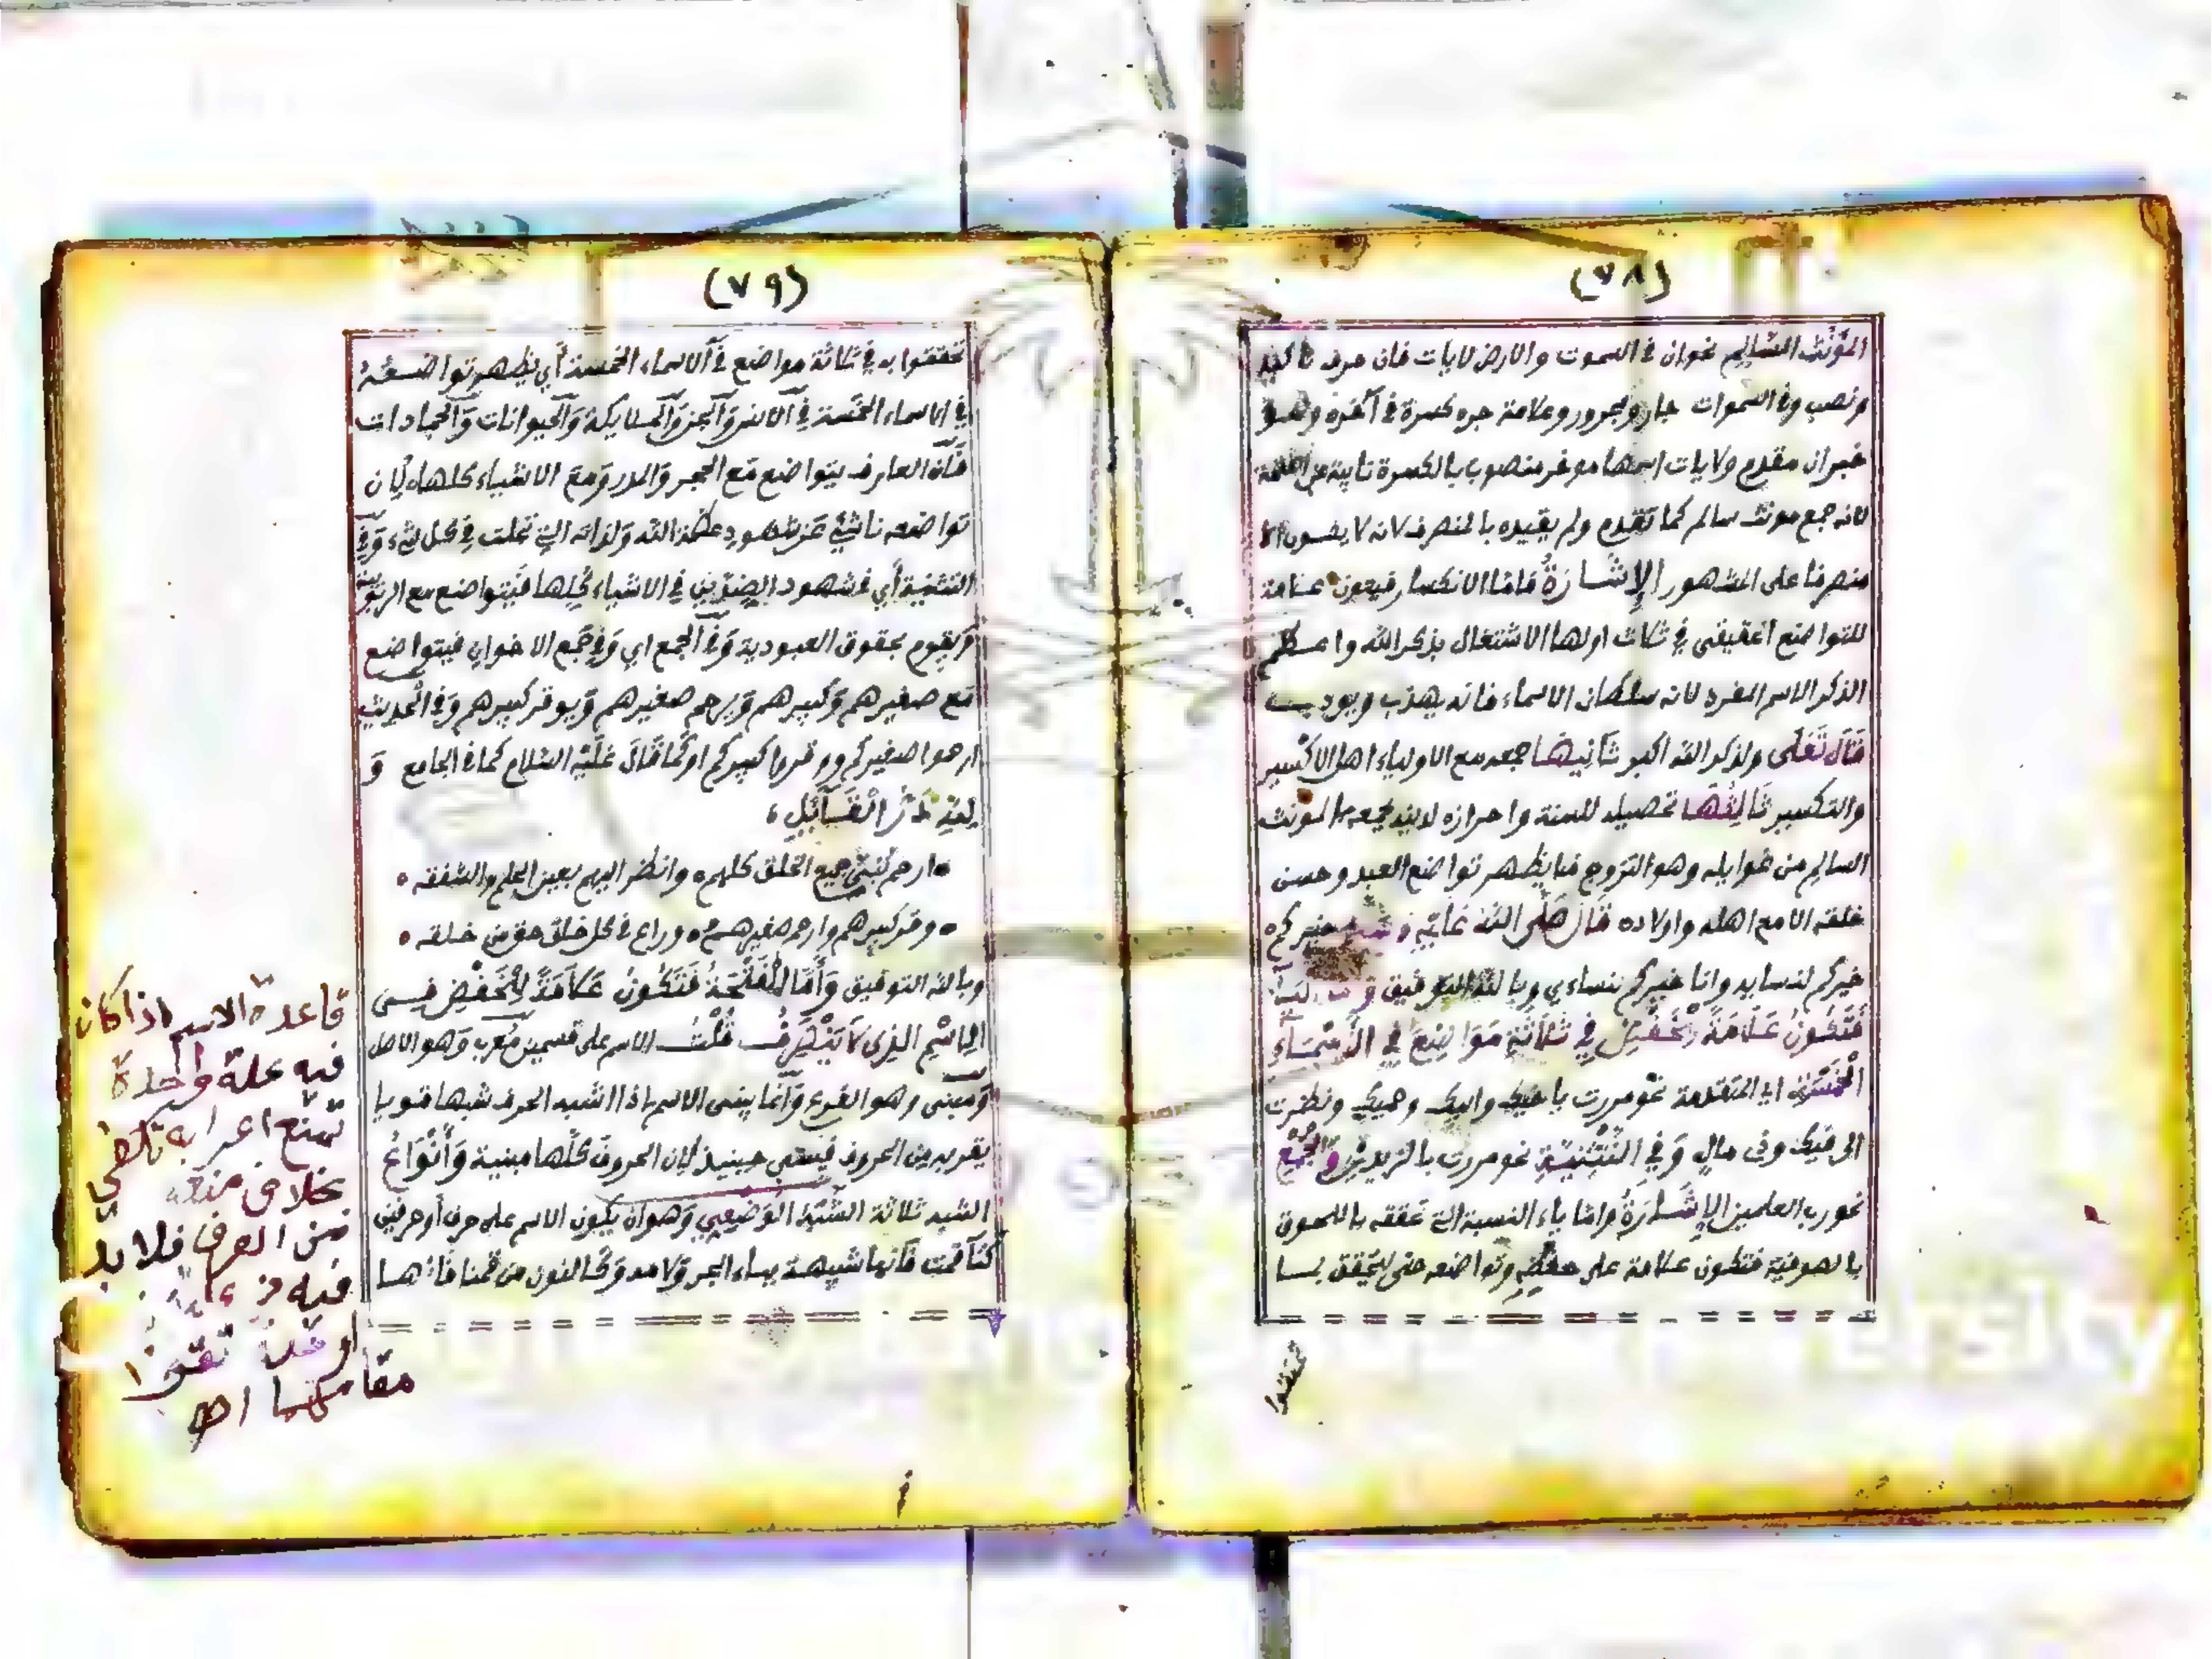 (٧٨)
المؤنث السالم نحوان في السموت والارض لايات فان حرف تاكيد
ونصب وفي السموات جار ومجرور وعلامة جره كسرة في آخره وهو
خبر ان مقدم ولايات اسمها موخر منصوب بالكسرة نايبة عن الفتحة
لانه جمع مونث سالم كما تقدم ولم يقيده بالمنصرف لانه لا يكون الا
منصرفا على المشهور الإشارة فاما الانكسار فيكون علامة
للتواضع الحقيقي في ثلاث اولها الاشتغال بذكر الله واعظم
الذكر الاسم المفرد لانه سلطان الاسماء فانه يهذب ويودب
قال تعلى ولذكر الله اكبر ثانيها جمعه مع الاولياء اهل الاكسير
والتكسير ثالثها تحصيله للسنة واحرازه لدينه بجمعه المونث
السالم من غوايله وهو التزوج فما يظهر تواضع العبد وحسن
خلقه الا مع اهله واولاده قال صلى الله عليه خيركم
خيركم لنسايه وانا خيركم لنساءي وبالله التوفيق
فتكون علامة للخفض في ثلاثة مواضع في الأسماء
الخمسة اي المتقدمة نحو مررت باخيك وابيك وحميك ونظرت
الى فيك وذي مال وفي التثنية نحو مررت بالزيدين والجمع
نحو رب العلمين الإشارة واما ياء النسبة التي تحققه باللحوق
بالصوفية فتكون علامة على خفضه وتواضعه حتى يتحقق بما
تحققوا
(٧٩)
تحققوا به في ثلاثة مواضع في الاسماء الخمسة أي يظهر تواضعه
في الاسماء الخمسة في الانس والجن والملايكة والحيوانات والجمادات
فان العارف يتواضع مع الحجر والمدر ومع الاشياء كلها لان
تواضعه ناشئ عن شهود عظمة الله ولذاته التي تجلت في كل شيء وفي
التثنية أي في شهود الضدين في الاشياء كلها فيتواضع مع الربوبية
ويقوم بحقوق العبودية وفي الجمع اي وفي جمع الاخوان فيتواضع
مع صغيرهم وكبيرهم ويرحم صغيرهم ويوقر كبيرهم وفي الحديث
ارحموا صغيركم ووقروا كبيركم او كما قال عليه السلام كما في الجامع و
لله در القائل
ارحم بني جميع الخلق كلهم وانظر اليهم بعين الحلم والشفقه
وقر كبيرهم وارحم صغيرهم وراع في كل خلق حق من خلقه
وبالله التوفيق وأما الفتحة فتكون علامة للخفض في
الاسم الذي لا ينصرف قلت الاسم على قسمين معرب وهو الاصل
ومبنى وهو الفرع وانما يبنى الاسم اذا اشبه الحرف شبها قويا
يقربه من الحروف فيبنى حينيذ لان الحروف كلها مبنية وأنواع
الشبه ثلاثة الشبه الوضعي وهو ان يكون الاسم على حرف أو حرفين
كتا قمت فانها شبيهة بباء الجر ولامه وكالنون من قمنا فانها
قاعدة الاسم اذا كان
فيه علة واحدة
تمنع اعرابه تكفي
بخلاف منعه
من الصرف فلا بد
فيه من
او علة تقوم
مقامهما اهـ